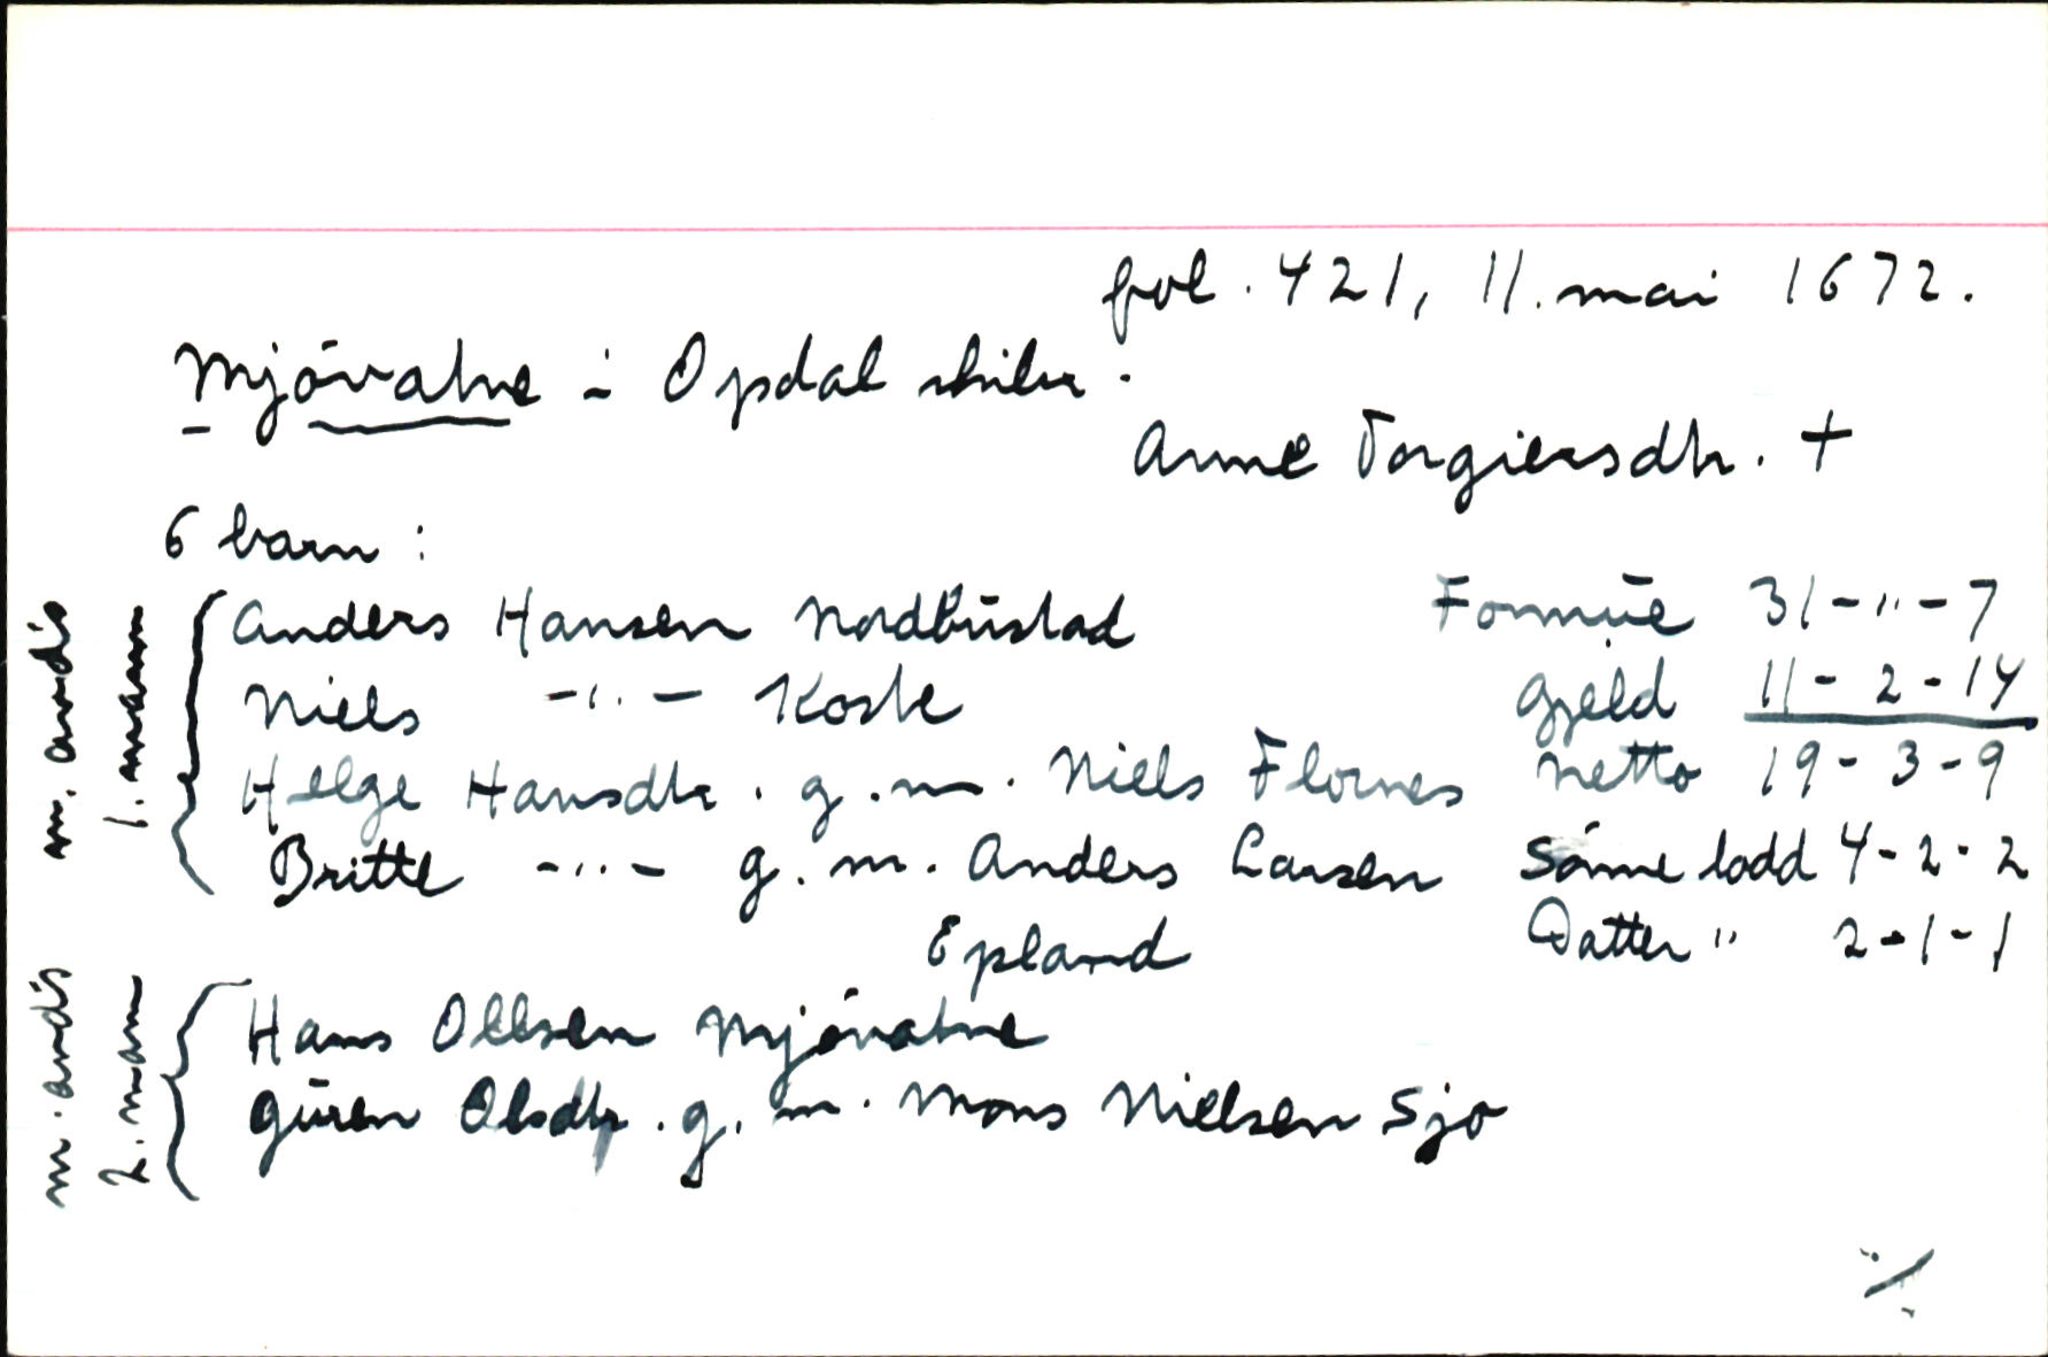 fol. 421, 11. mai 1672.
Mjóvatne i Opdal skibr.
Anne Torgiersdtr. +
6 barn :
m. avdøs 1. mann
Anders Hansen Nordbustad Formue 31 - " - 7
Niels - " - Koste Gjeld 11 - 2 - 14
Helge Hansdtr. g. m. Niels Flornes Netto 19 - 3 - 9
Britte - " - g. m. Anders Larsen Sönne lodd 4 - 2 - 2
Epland Datter " 2 - 1 - 1
m. avdøs 2. mann
Hans Ollsen Mjövatne
Guren Olsdtr. g. m. Mons Nielsen Sjo
./.